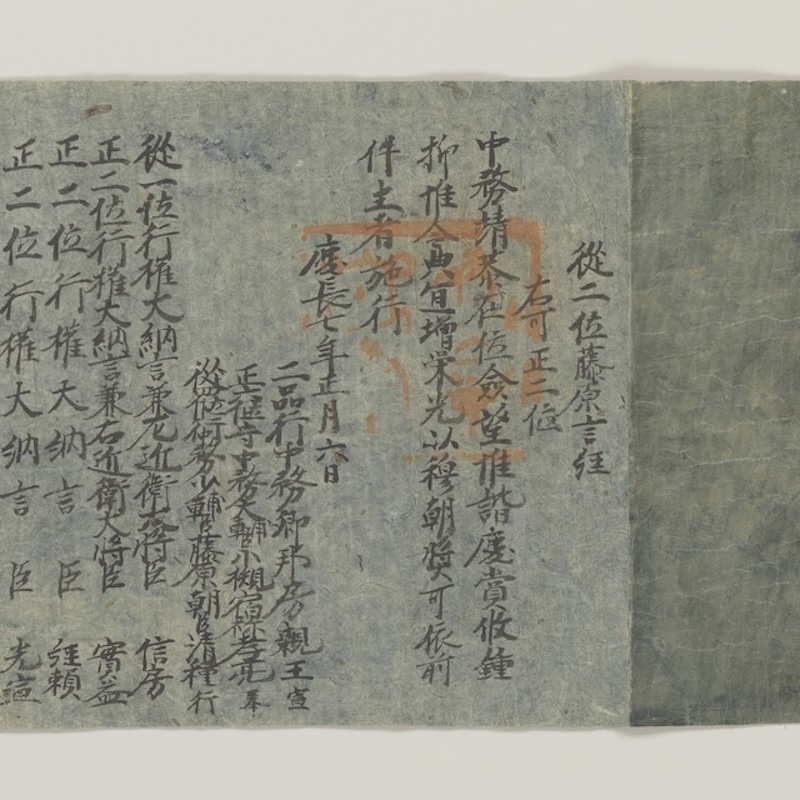 從二位藤原言経
右可正二位
中務靖恭在位僉望惟諧慶賞攸鍾
抑惟令典宜増栄光以穆朝奨可依前
件主者施行
慶長七年正月六日
二品行中務卿邦房親王宣
正位守中務大輔小槻宿祢孝亮奉
從位行中務少輔臣藤原朝臣清種行
從一位行権大納言兼左近衛大将臣 信房
正二位行権大納言兼右近衛大将臣 實益
正二位行権大納言臣 経頼
正二位行権大納言臣 光宣